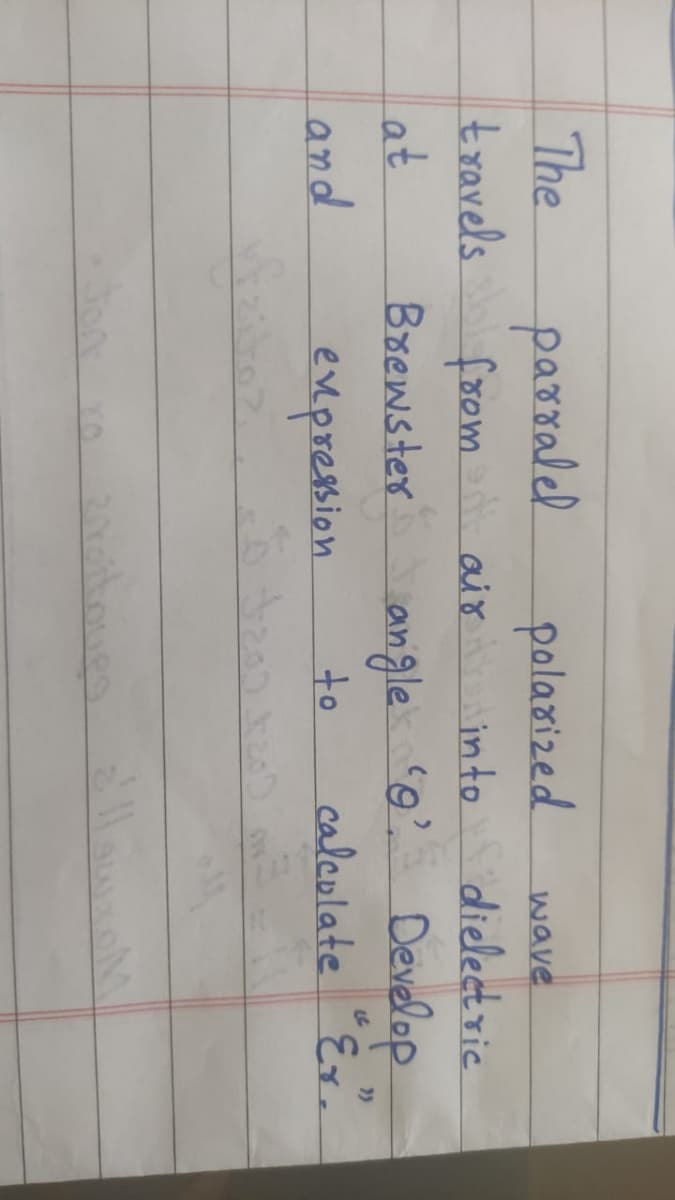 The parralel polarized wave
travels from air into dielectric
at Brewster angle 'θ'. Develop
and expression to calculate "Er."